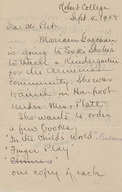 Robert College
Sept. 4, 1925
Dear Mr. Peet,
Mariam
is going to
to teach a Kindergarten
for the
Community. She was
trained in Harpoot
under Miss Platt.
She wants to order
a few books.
"In the Child's World"
Finger Play
one copy of each